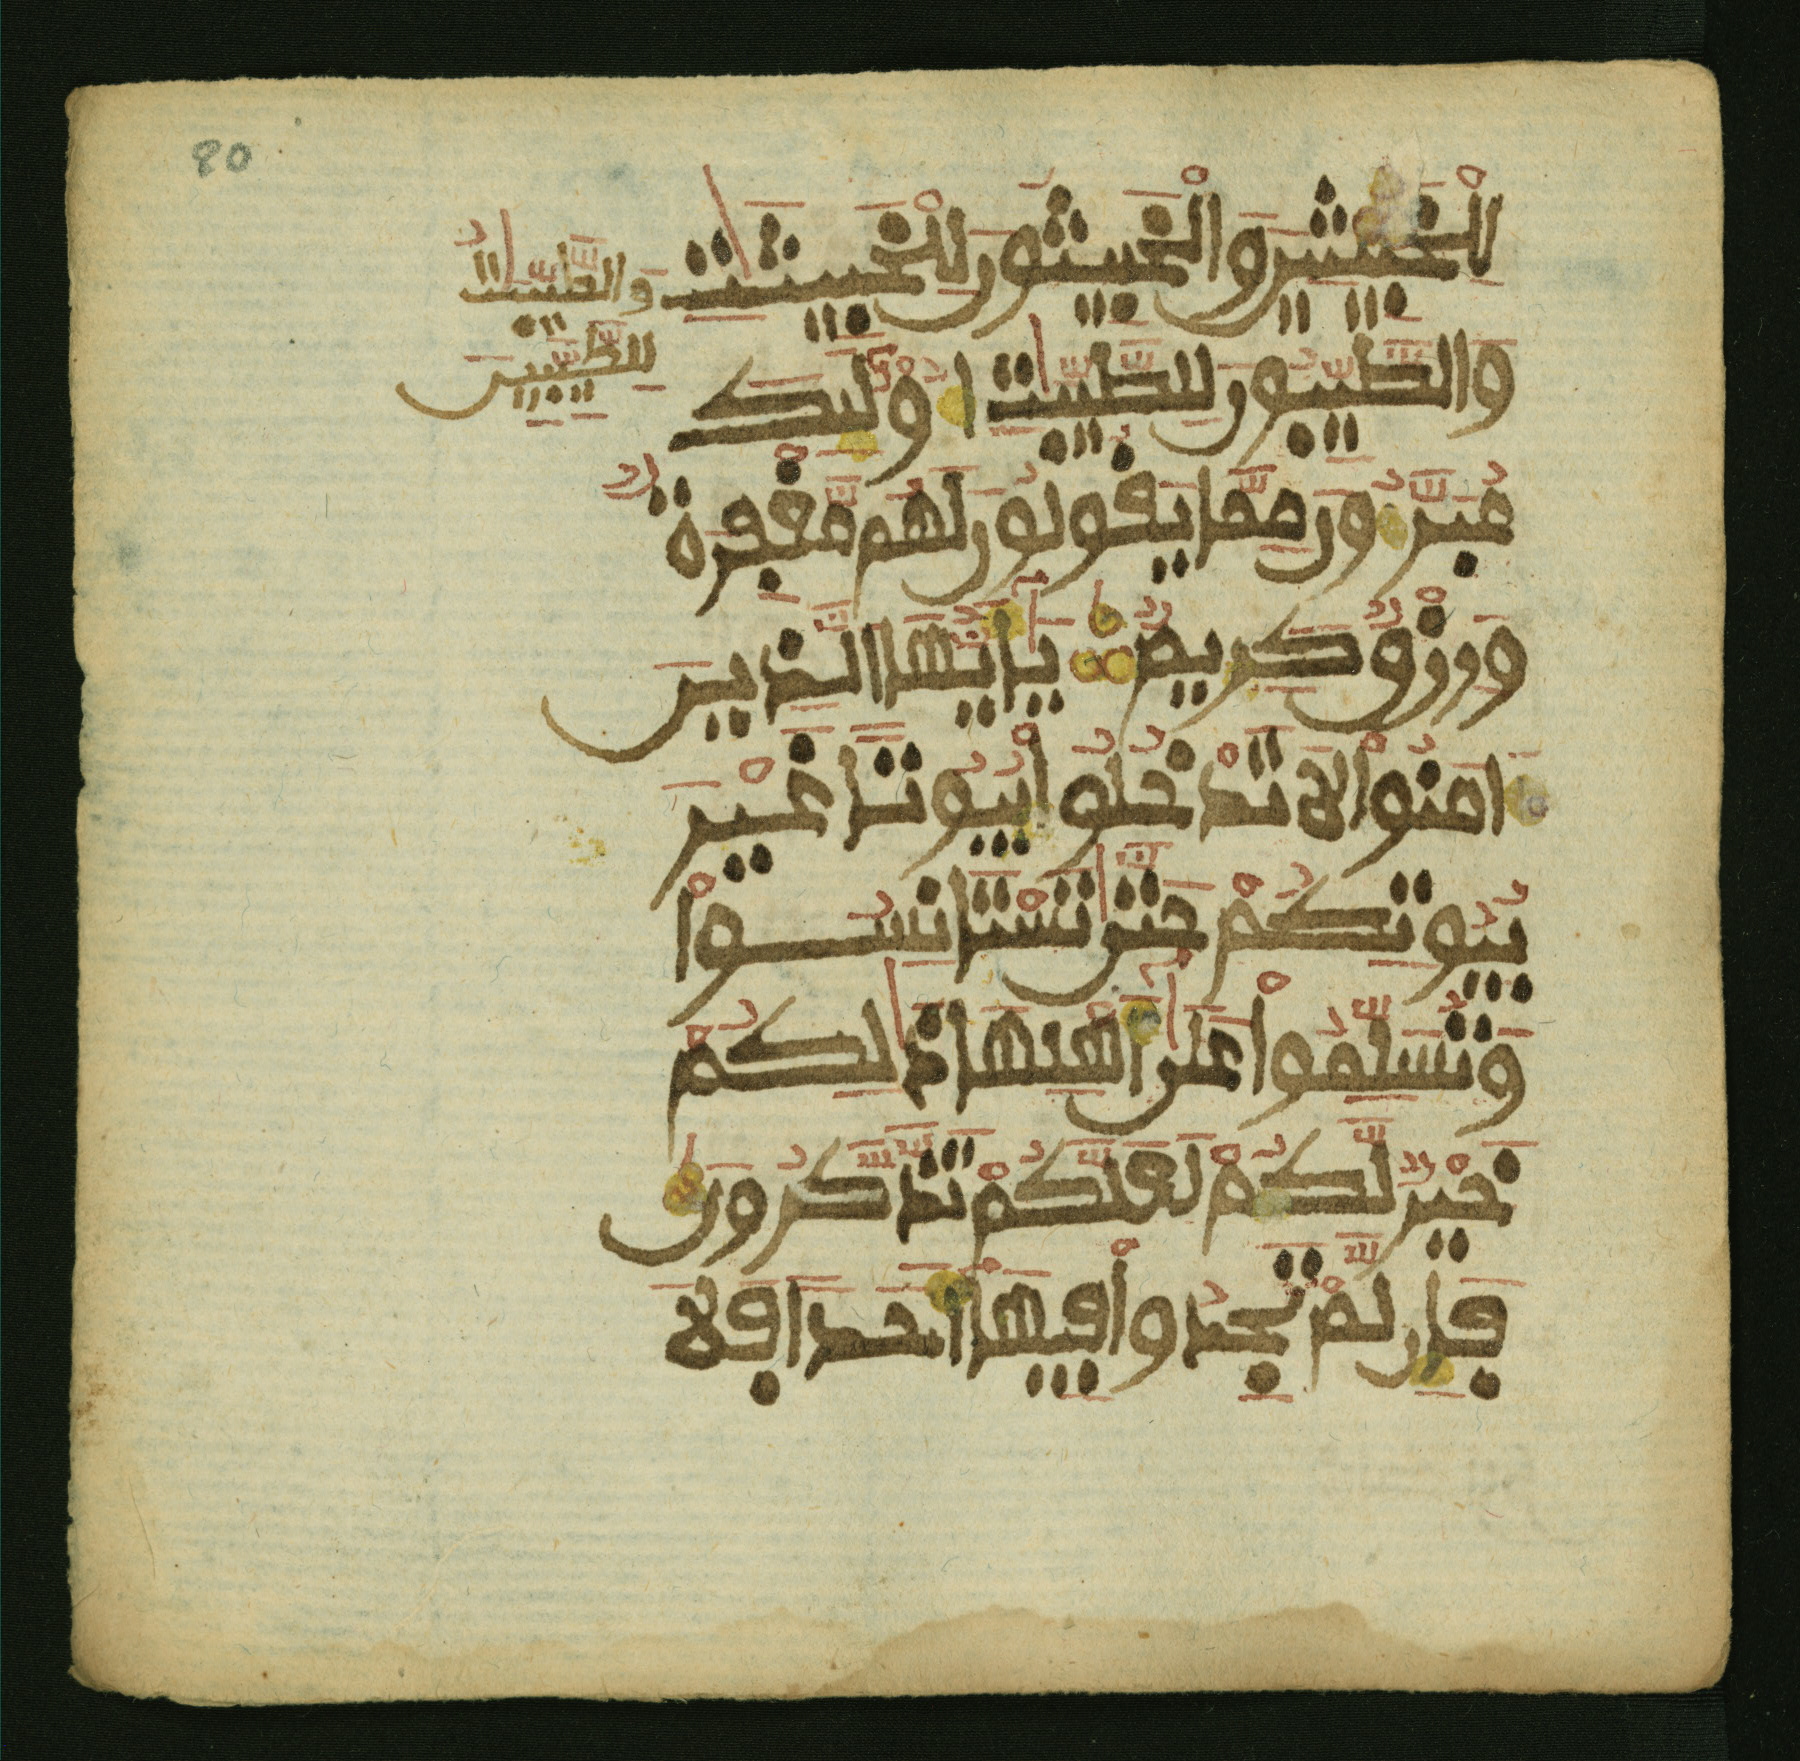 80
لِلْخَبِيثِينَ وَالْخَبِيثُونَ لِلْخَبِيثَٰتِ
وَالطَّيِّبَٰتُ
لِلطَّيِّبِينَ
وَالطَّيِّبُونَ لِلطَّيِّبَٰتِ أُوْلَٰئِكَ
مُبَرَّءُونَ مِمَّا يَقُولُونَ لَهُم مَّغْفِرَةٌ
وَرِزْقٌ كَرِيمٌ يَٰأَيُّهَا الَّذِينَ
ءَامَنُواْ لَا تَدْخُلُواْ بُيُوتًا غَيْرَ
بُيُوتِكُمْ حَتَّىٰ تَسْتَانِسُواْ
وَتُسَلِّمُواْ عَلَىٰ أَهْلِهَا ذَٰلِكُمْ
خَيْرٌ لَّكُمْ لَعَلَّكُمْ تَذَّكَّرُونَ
فَإِن لَّمْ تَجِدُواْ فِيهَا أَحَدًا فَلَا